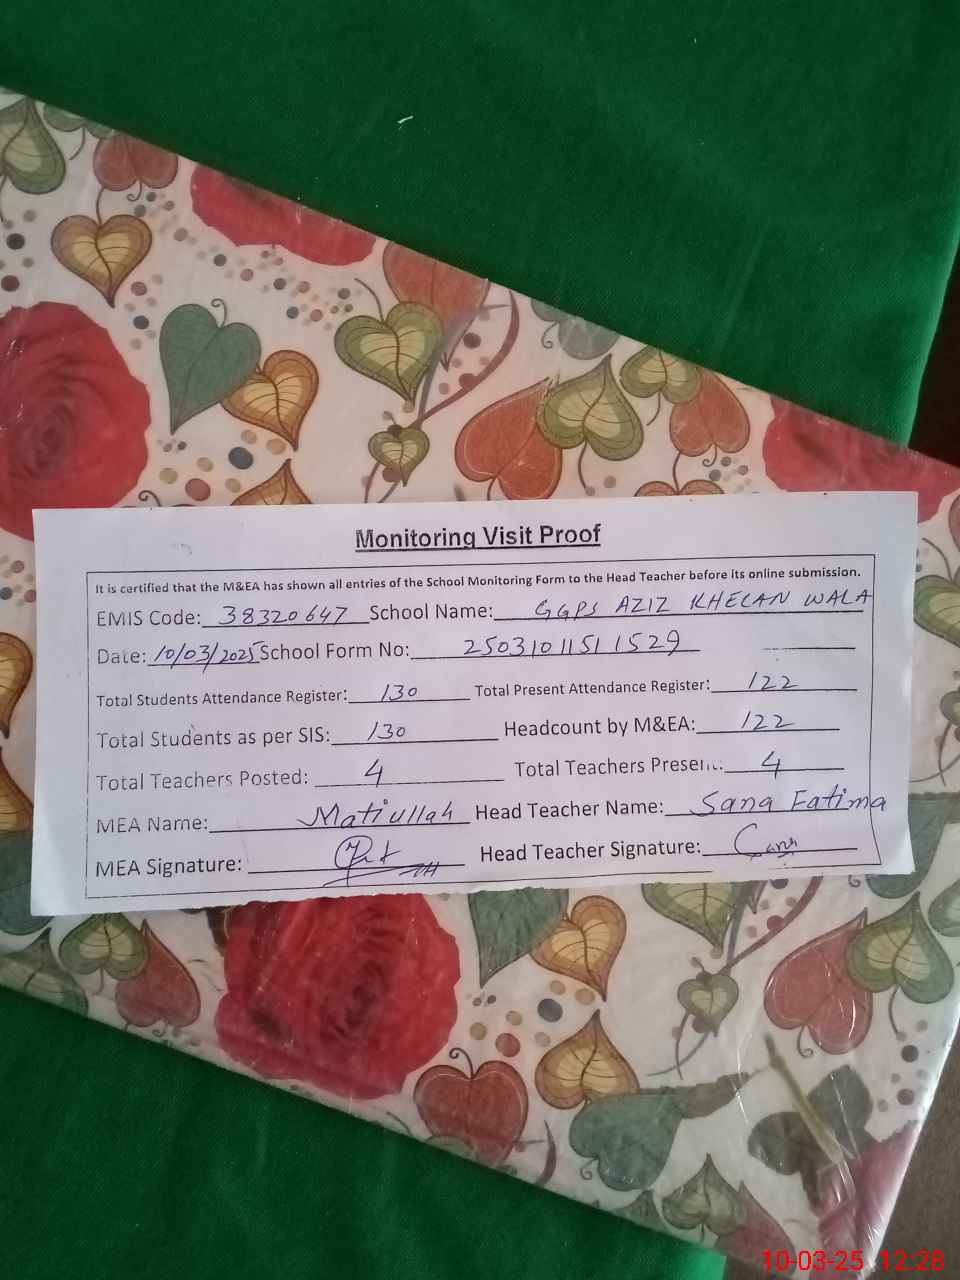 Monitoring Visit Proof
It is certified that the M&EA has shown all entries of the School Monitoring Form to the Head Teacher before its online submission.
EMIS Code: 38320647 School Name: GGPS AZIZ KHELAN WALA
Date: 10/03/2025 School Form No: 25031011511529
Total Students Attendance Register: 130 Total Present Attendance Register: 122
Total Students as per SIS: 130 Headcount by M&EA: 122
Total Teachers Posted: 4 Total Teachers Present: 4
MEA Name: Matiullah Head Teacher Name: Sana Fatima
MEA Signature: Head Teacher Signature:
10-03-25 12:28